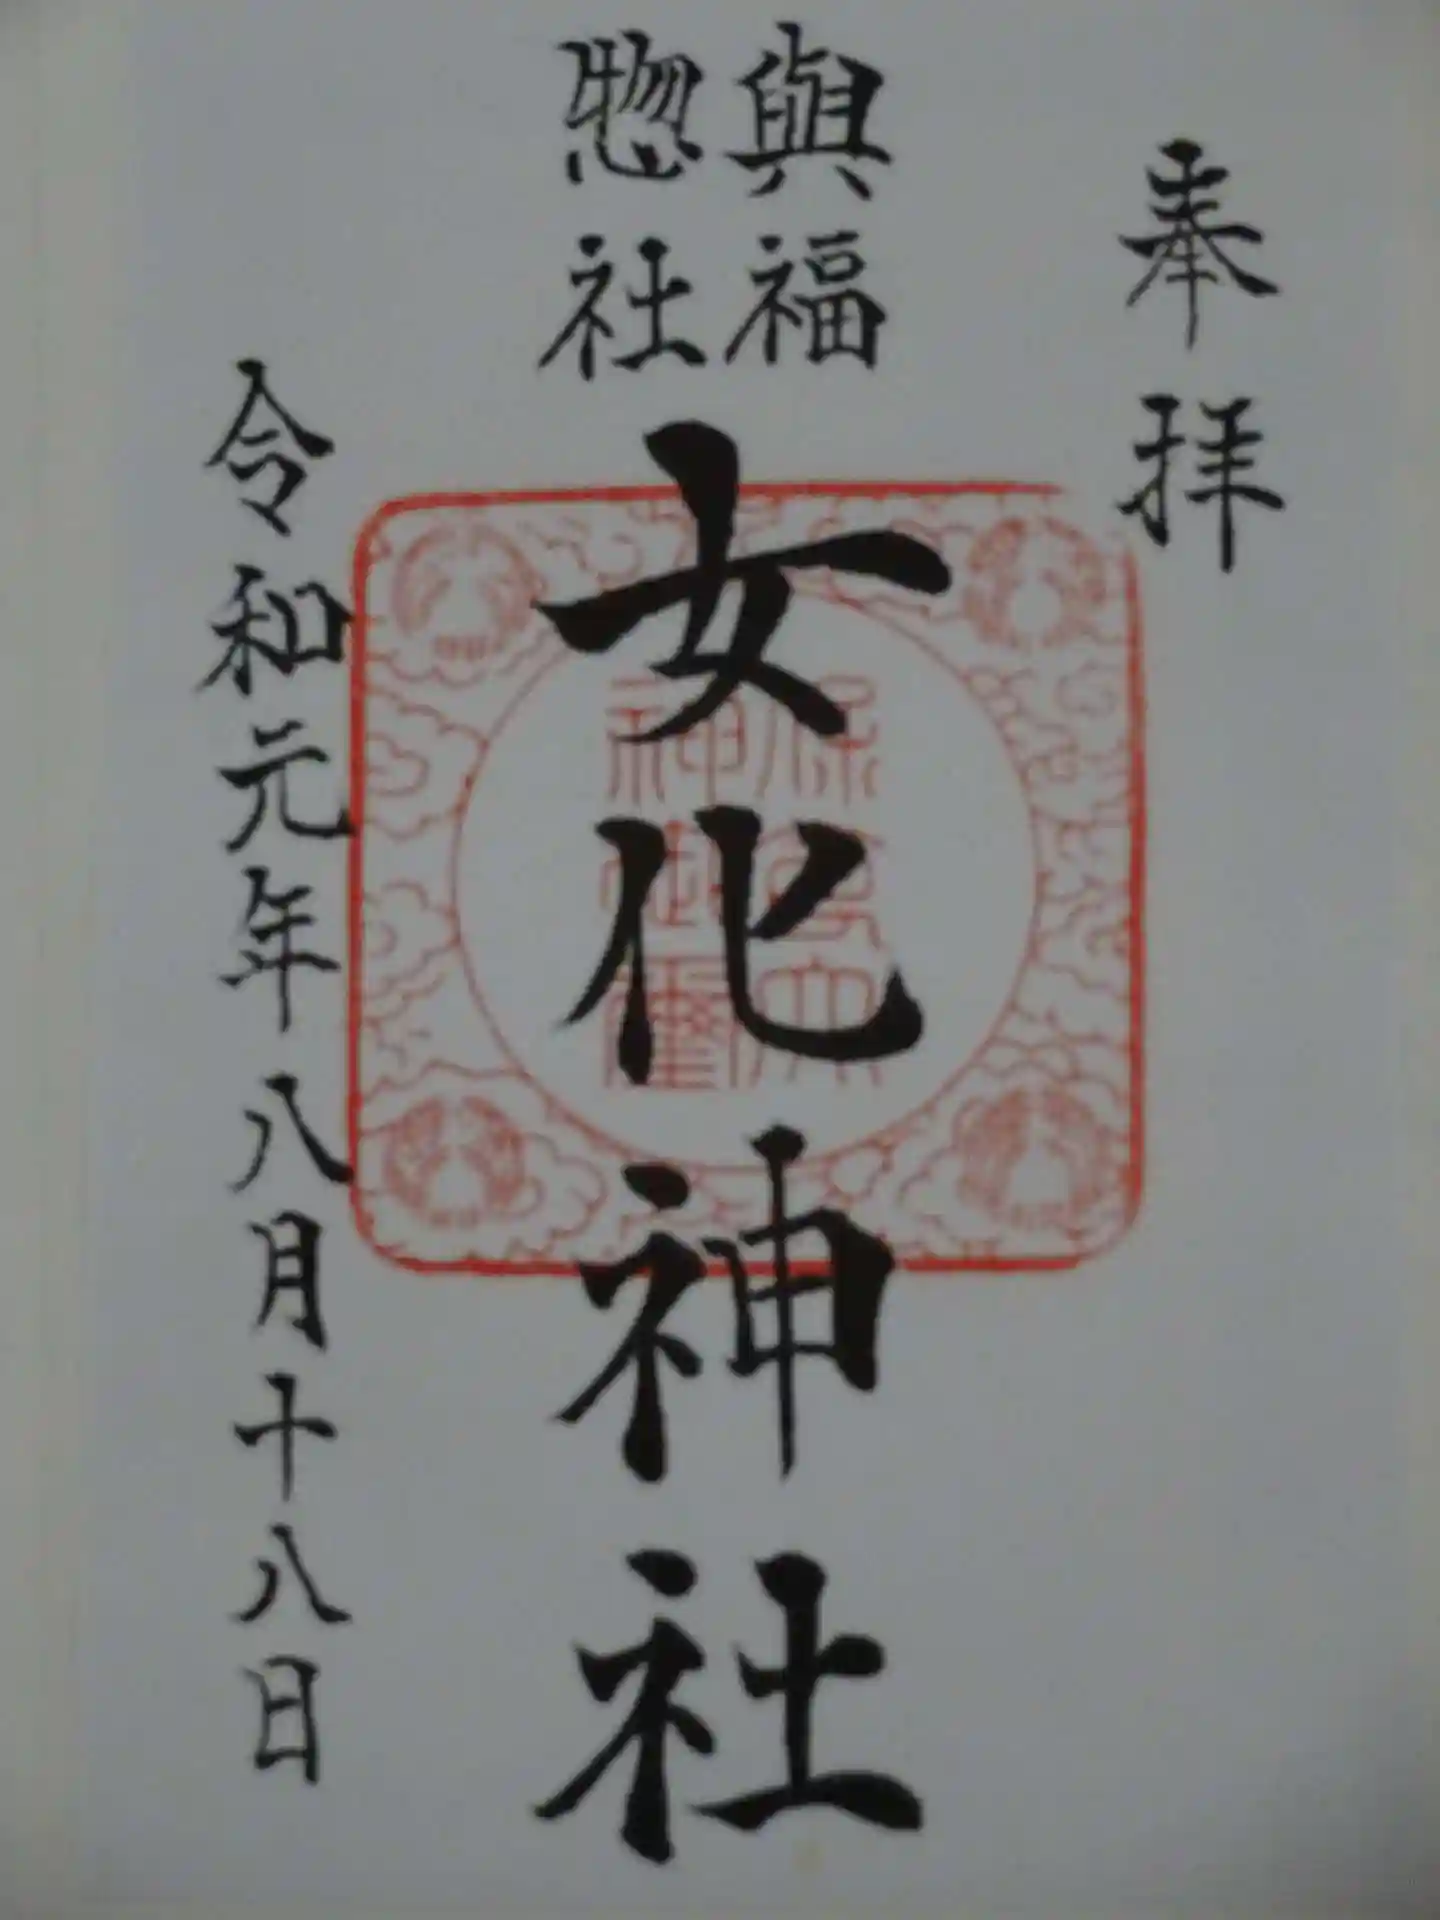 奉拝
與福
惣社
女化神社
令和元年八月十八日